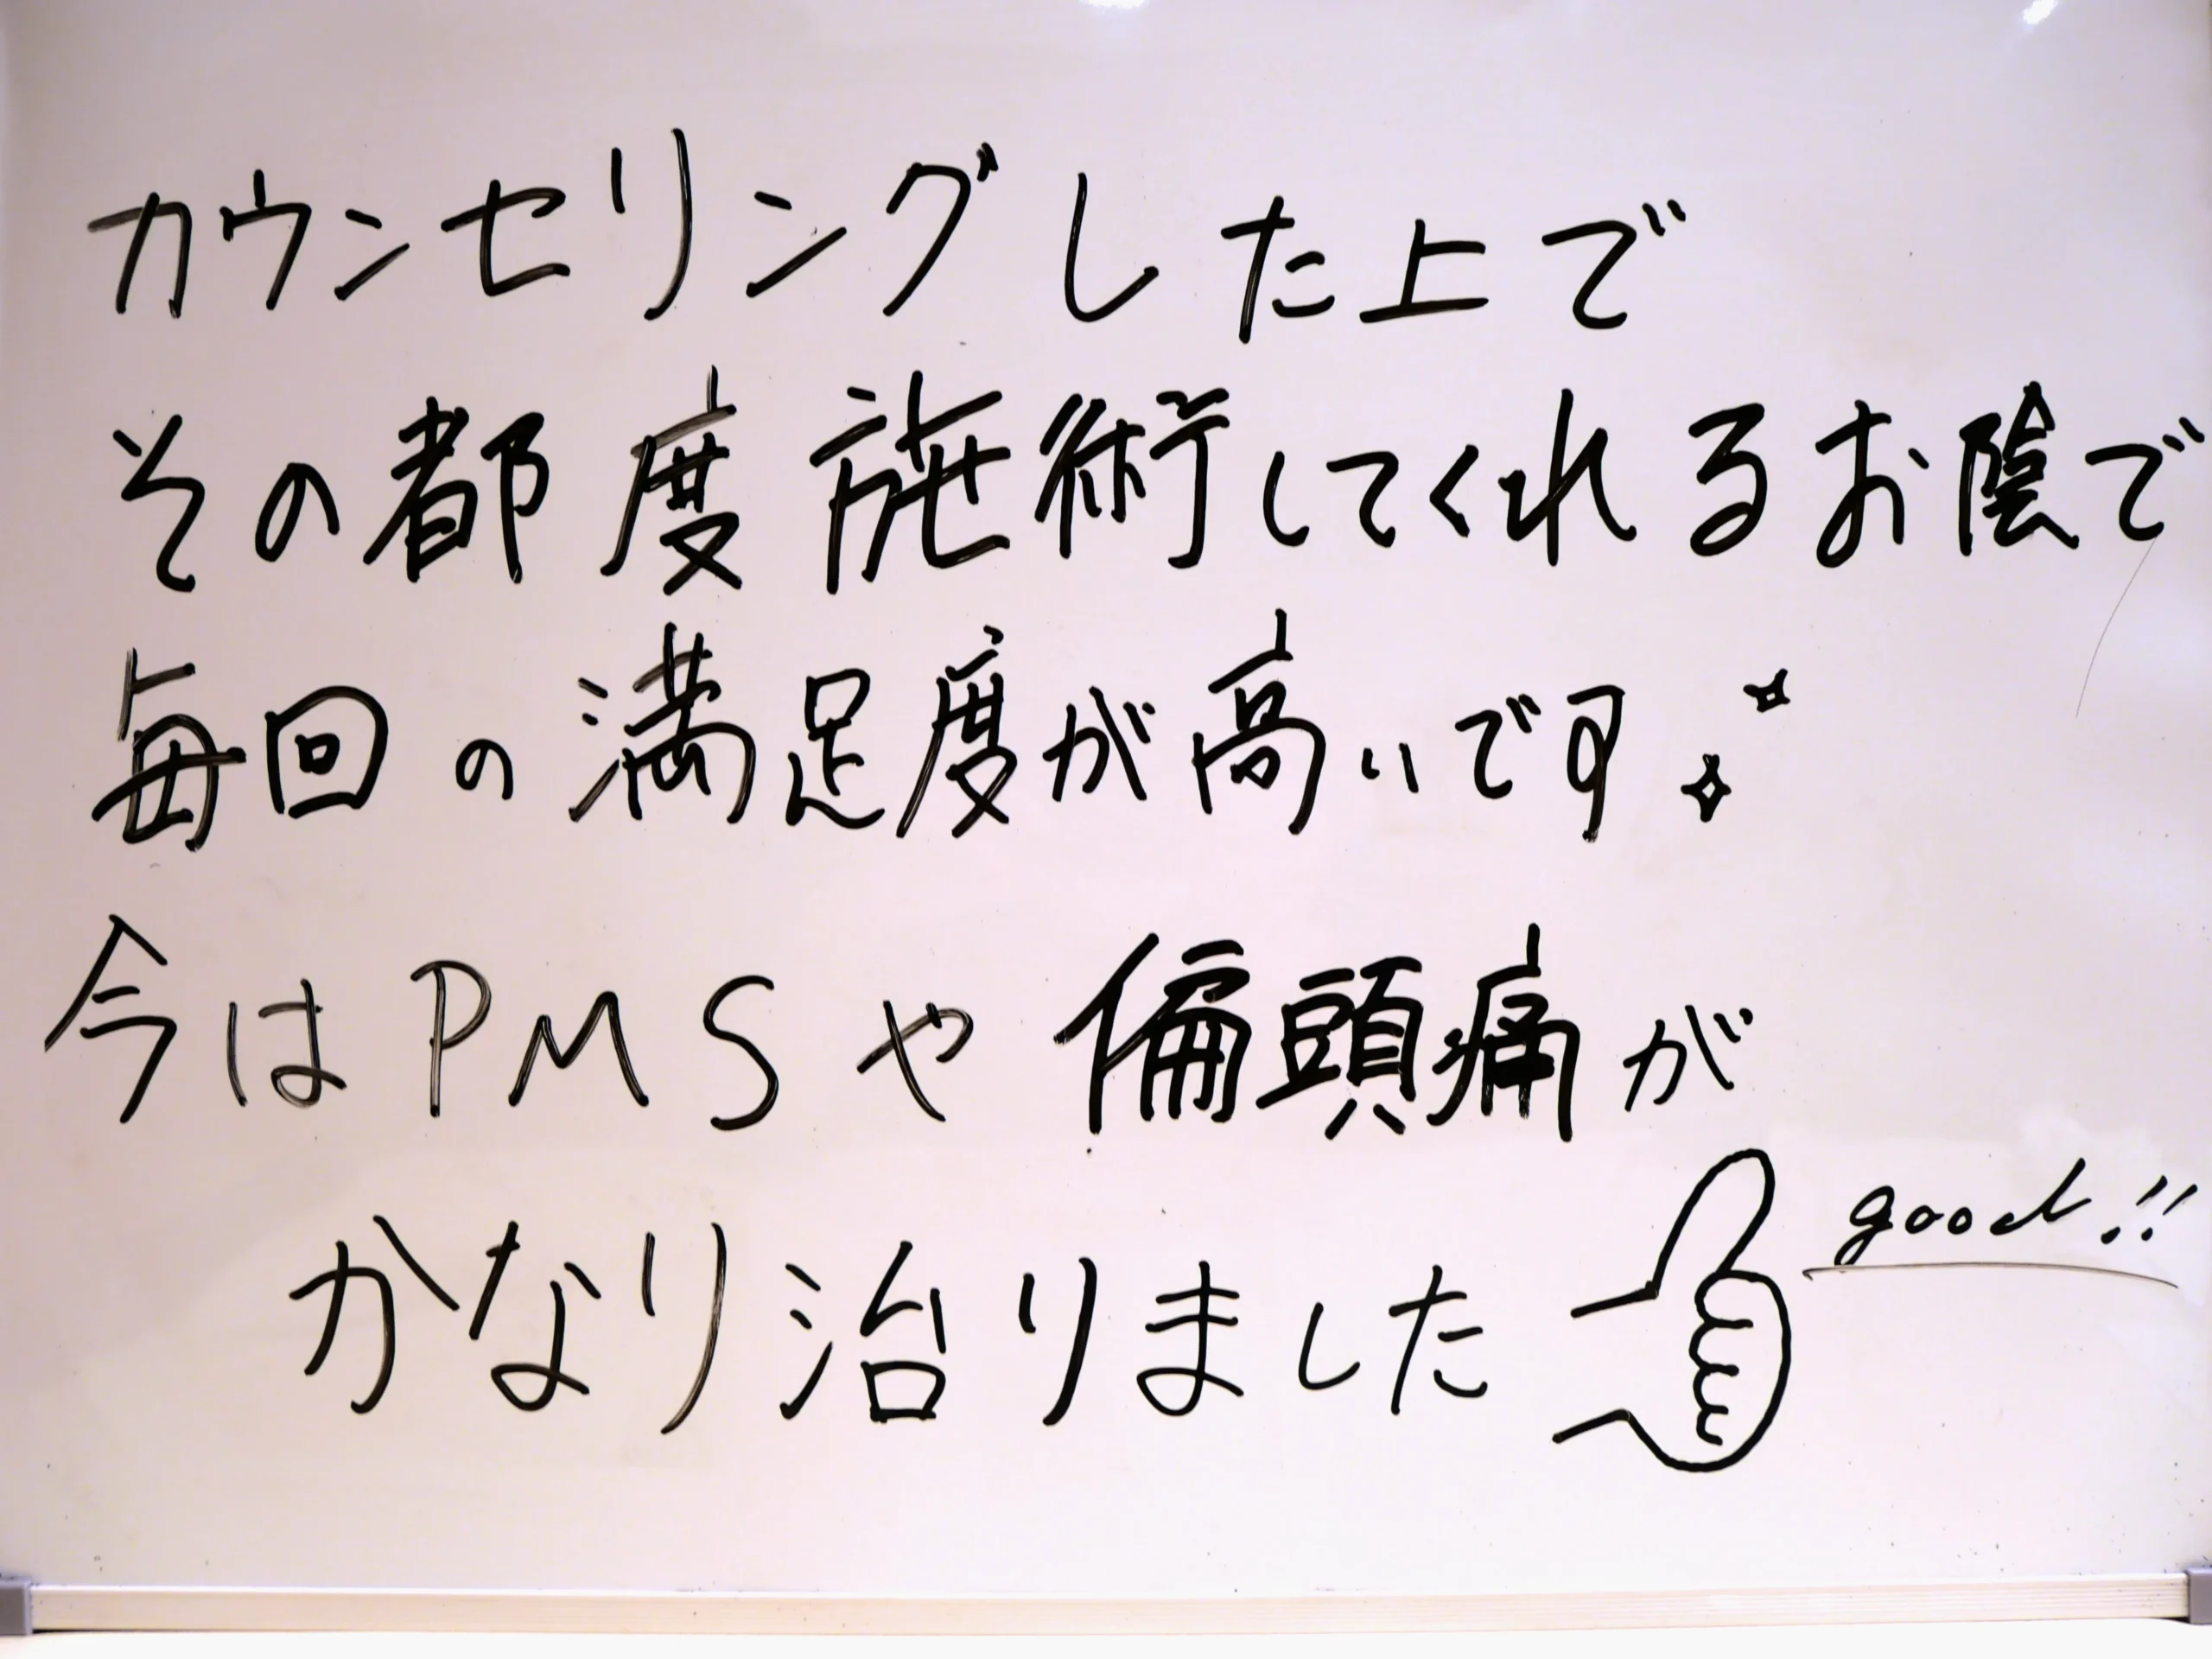 カウンセリングした上で
その都度施術してくれるお陰で
毎回の満足度が高いです
今はPMSや偏頭痛が
かなり治りました
good!!